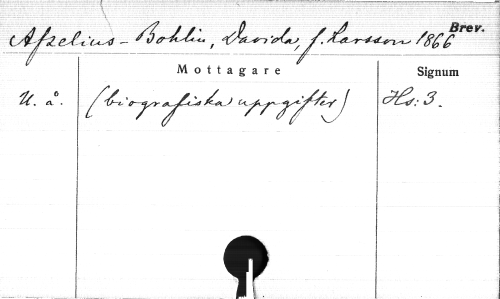 Brev.
Afzelius-Bohlin, Davida, f. Larsson 1866
Mottagare Signum
U. å. (biografiska uppgifter) Hs: 3.